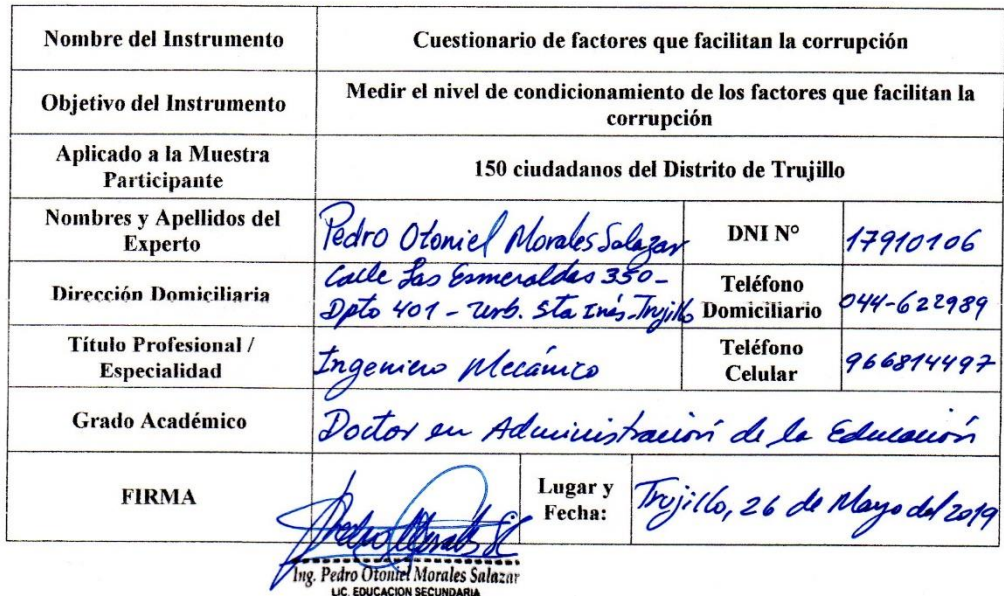 Nombre del Instrumento
Cuestionario de factores que facilitan la corrupción
Objetivo del Instrumento
Medir el nivel de condicionamiento de los factores que facilitan la
corrupción
Aplicado a la Muestra
Participante
150 ciudadanos del Distrito de Trujillo
Nombres y Apellidos del
Experto
Pedro Otoniel Morales Salazar
DNI N°
17910106
Dirección Domiciliaria
Calle Las Esmeraldas 350-
Dpto 401 - Urb. Sta Inés-Trujillo
Teléfono
Domiciliario
044-622989
Título Profesional /
Especialidad
Ingeniero Mecánico
Teléfono
Celular
966814497
Grado Académico
Doctor en Administración de la Educación
FIRMA
Lugar y
Fecha:
Trujillo, 26 de Mayo del 2019
Ing. Pedro Otoniel Morales Salazar
LIC. EDUCACION SECUNDARIA